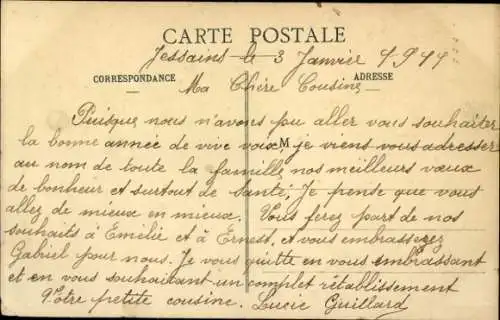 CARTE POSTALE
Jessains le 3 Janvier 1944
CORRESPONDANCE
ADRESSE
Ma Chère Cousine
Puisque nous n'avons pu aller vous souhaiter
la bonne année de vive voix, je viens vous adresser
M
au nom de toute la famille nos meilleurs vœux
de bonheur et surtout de Santé, Je pense que vous
allez de mieux en mieux. Vous ferez part de nos
souhaits à Emilie et à Ernest, et vous embrasserez
Gabriel pour nous. Je vous quitte en vous embrassant
et en vous souhaitant un complet rétablissement
Votre petite cousine. Lucie Guillard